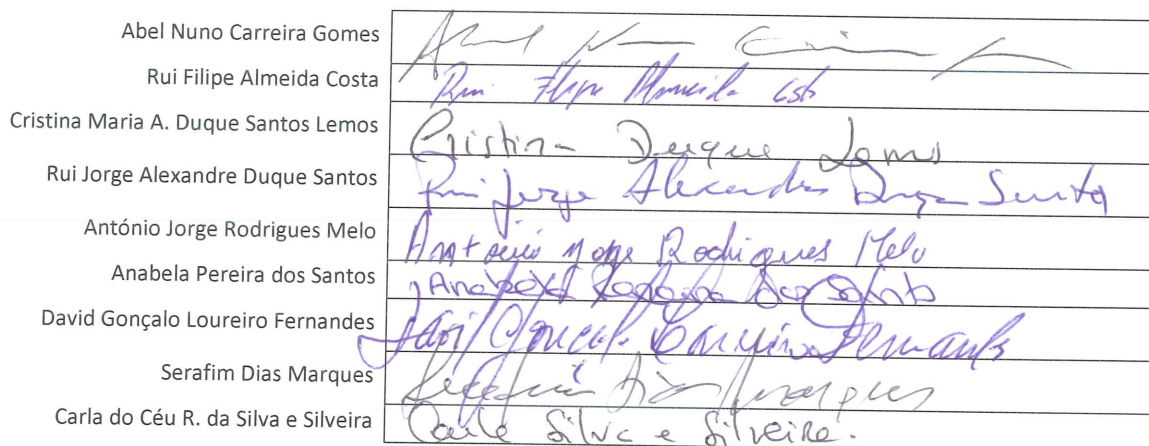 Abel Nuno Carreira Gomes Abel Nuno
Rui Filipe Almeida Costa Rui Filipe Almeida Costa
Cristina Maria A. Duque Santos Lemos Cristina Duque Lemos
Rui Jorge Alexandre Duque Santos Rui Jorge Alexandre Duque Santos
António Jorge Rodrigues Melo António Jorge Rodrigues Melo
Anabela Pereira dos Santos Anabela Pereira dos Santos
David Gonçalo Loureiro Fernandes David Gonçalo Loureiro Fernandes
Serafim Dias Marques Serafim Dias Marques
Carla do Céu R. da Silva e Silveira Carla Silva e Silveira.